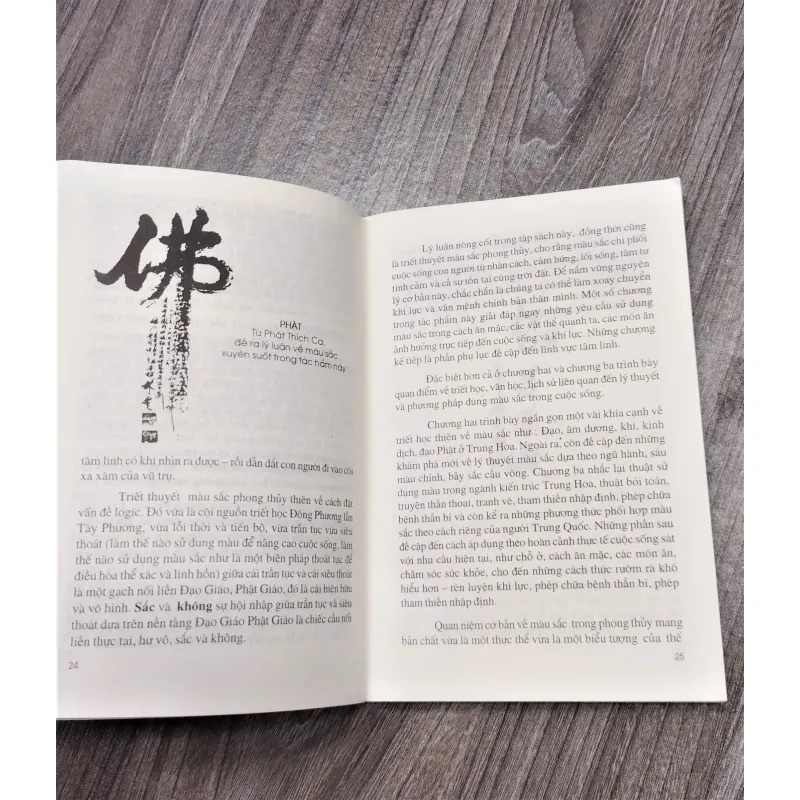 佛
PHẬT
Từ Phật Thích Ca,
đề ra lý luận về màu sắc
xuyên suốt trong tác hẩm này
tâm linh có khi nhìn ra được – rồi dẫn dắt con người đi vào cõi
xa xăm của vũ trụ.
Triết thuyết màu sắc phong thủy thiên về cách đặt
vấn đề logic. Đó vừa là cội nguồn triết học Đông Phương lẫn
Tây Phương, vừa lỗi thời và tiến bộ, vừa trần tục vừa siêu
thoát (làm thế nào sử dụng màu để nâng cao cuộc sống, làm
thế nào sử dụng màu sắc như là một biện pháp thoát tục để
điều hòa thể xác và linh hồn) giữa cái trần tục và cái siêu thoát
là một gạch nối liền Đạo Giáo, Phật Giáo, đó là cái hiện hữu
và vô hình. Sắc và không sự hội nhập giữa trần tục và siêu
thoát dựa trên nền tảng Đạo Giáo Phật Giáo là chiếc cầu nối
liền thực tại, hư vô, sắc và không.
24
Lý luận nòng cốt trong tập sách này, đồng thời cũng
là triết thuyết màu sắc phong thủy, cho rằng màu sắc chi phối
cuộc sống con người từ nhân cách, cảm hứng, lối sống, tâm tư
tình cảm và cả sự tồn tại cùng trời đất. Để nắm vững nguyên
lý cơ bản này, chắc chắn là chúng ta có thể làm xoay chuyển
khí lực và vận mệnh chính bản thân mình. Một số chương
trong tác phẩm này giải đáp ngay những yêu cầu sử dụng
màu sắc trong cách ăn mặc, các vật thể quanh ta, các món ăn
ảnh hưởng trực tiếp đến cuộc sống và khí lực. Những chương
kế tiếp là phần phụ lục đề cập đến lĩnh vực tâm linh.
Đặc biệt hơn cả ở chương hai và chương ba trình bày
quan điểm về triết học, văn học, lịch sử liên quan đến lý thuyết
và phương pháp dùng màu sắc trong cuộc sống.
Chương hai trình bày ngắn gọn một vài khía cạnh về
triết học thiên về màu sắc như : Đạo, âm dương, khí, kinh
dịch, đạo Phật ở Trung Hoa. Ngoài ra, còn đề cập đến những
khám phá mới về lý thuyết màu sắc dựa theo ngũ hành, sáu
màu chính, bảy sắc cầu vòng. Chương ba nhắc lại thuật sử
dụng màu trong ngành kiến trúc Trung Hoa, thuật bói toán,
truyền thần thoại, tranh vẽ, tham thiền nhập định, phép chữa
bệnh thần bí và còn kể ra những phương thức phối hợp màu
sắc theo cách riêng của người Trung Quốc. Những phần sau
đề cập đến cách áp dụng theo hoàn cảnh thực tế cuộc sống sát
với nhu cầu hiện tại, như chỗ ở, cách ăn mặc, các món ăn,
chăm sóc sức khỏe, cho đến những cách thức rườm rà khó
hiểu hơn – rèn luyện khí lực, phép chữa bệnh thần bí, phép
tham thiền nhập định.
Quan niệm cơ bản về màu sắc trong phong thủy mang
bản chất vừa là một thực thể vừa là một biểu tượng của thế
25